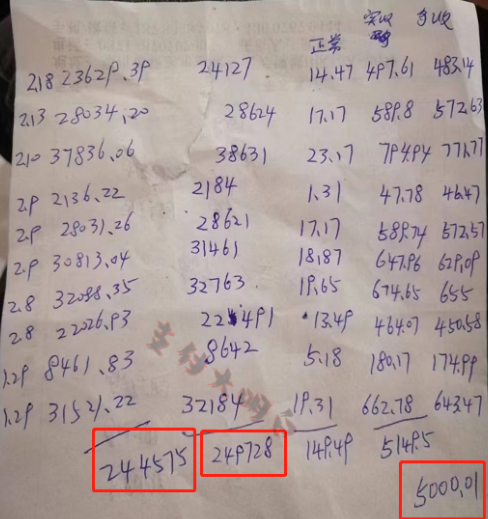 正常 实收 多收
2.18 23629.39 24127 14.47 497.61 483.14
2.13 28034.20 28624 17.17 589.8 572.63
2.10 37836.06 38631 23.17 794.94 771.77
2.9 2136.22 2184 1.31 47.78 46.47
2.9 28031.26 28621 17.17 589.74 572.57
2.9 30813.04 31461 18.87 647.96 629.09
2.8 32088.35 32763 19.65 674.65 655
2.8 22026.93 22491 13.49 464.07 450.58
1.29 8461.83 8642 5.18 180.17 174.99
1.29 31521.22 32184 19.31 662.78 643.47
244575 249728 149.49 5149.5
5000.01
支付